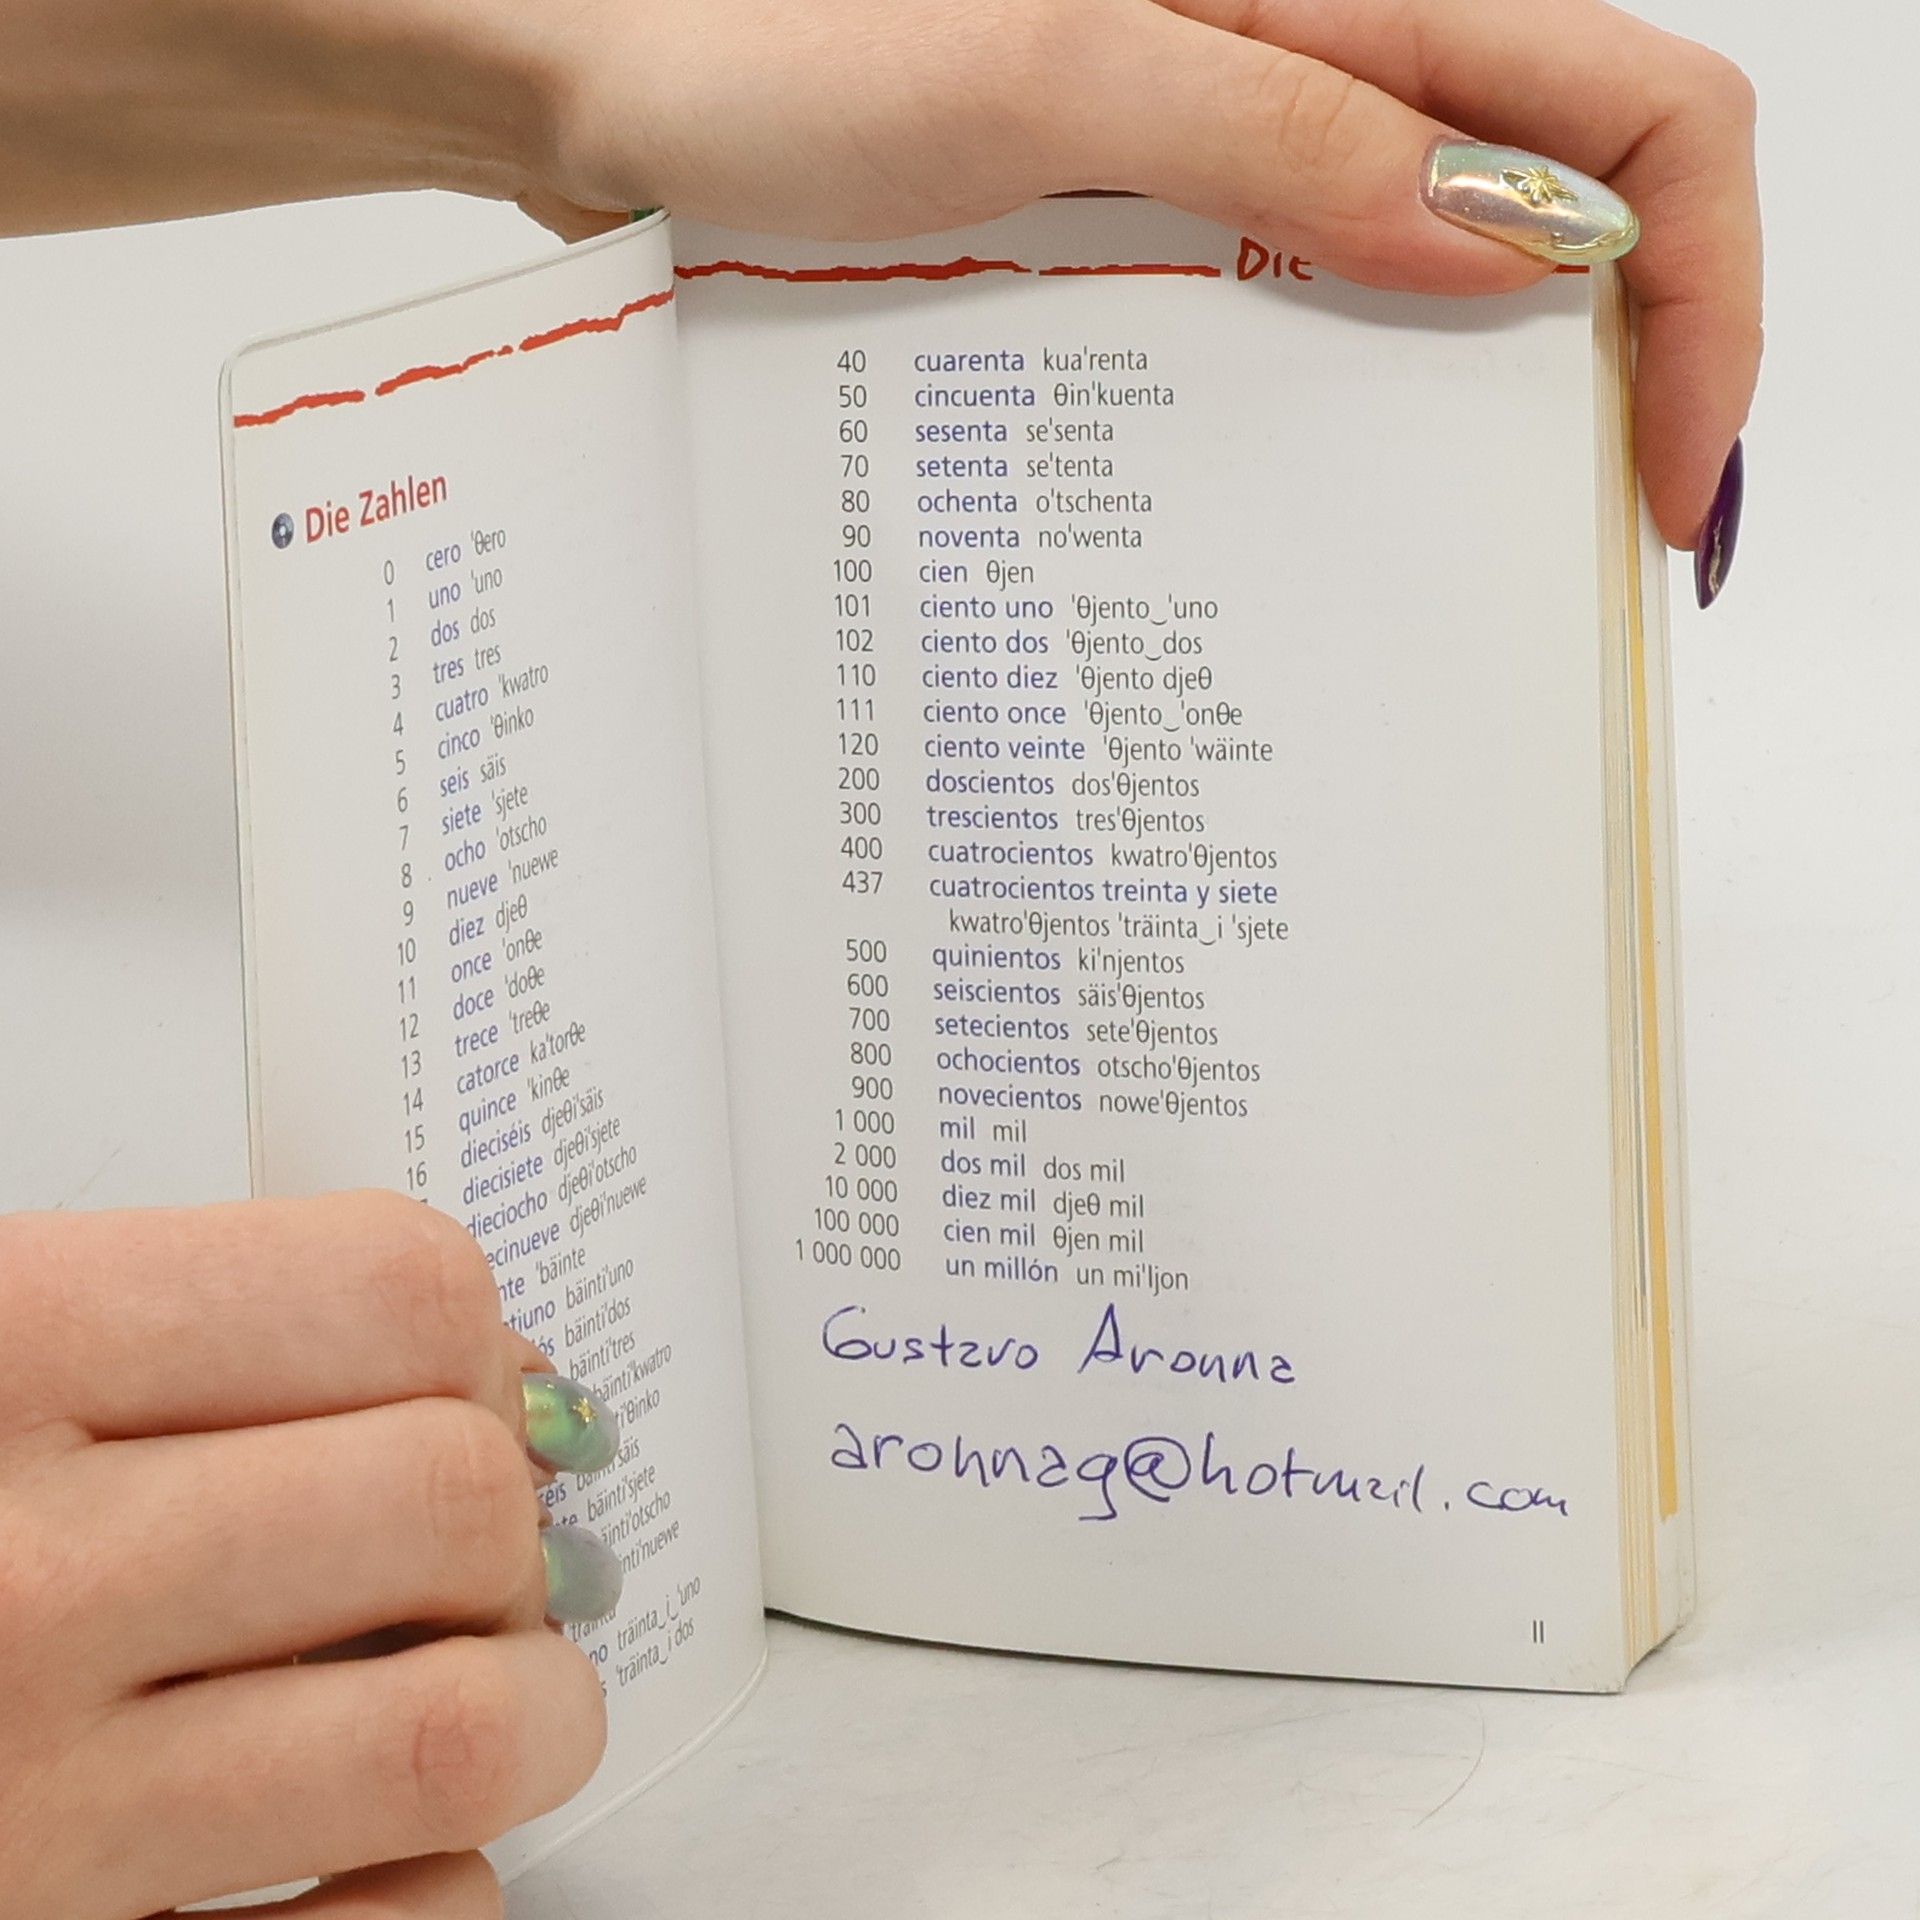 Die Zahlen
0 cero 'θero
1 uno 'uno
2 dos dos
3 tres tres
4 cuatro 'kwatro
5 cinco 'θinko
6 seis säis
7 siete 'sjete
8 ocho 'otscho
9 nueve 'nuewe
10 diez djeθ
11 once 'onθe
12 doce 'doθe
13 trece 'treθe
14 catorce ka'torθe
15 quince 'kinθe
16 dieciséis djeθi'säis
diecisiete djeθi'sjete
dieciocho djeθi'otscho
ecinueve djeθi'nuewe
nte 'bäinte
tiuno bäinti'uno
ós bäinti'dos
bäinti'tres
bäinti'kwatro
ti'θinko
éis bäinti'säis
te bäinti'sjete
äinti'otscho
inti'nuewe
no träinta‿i‿'uno
s 'träinta‿i dos
DIE
40 cuarenta kua'renta
50 cincuenta θin'kuenta
60 sesenta se'senta
70 setenta se'tenta
80 ochenta o'tschenta
90 noventa no'wenta
100 cien θjen
101 ciento uno 'θjento‿'uno
102 ciento dos 'θjento‿dos
110 ciento diez 'θjento djeθ
111 ciento once 'θjento‿'onθe
120 ciento veinte 'θjento 'wäinte
200 doscientos dos'θjentos
300 trescientos tres'θjentos
400 cuatrocientos kwatro'θjentos
437 cuatrocientos treinta y siete
kwatro'θjentos 'träinta‿i 'sjete
500 quinientos ki'njentos
600 seiscientos säis'θjentos
700 setecientos sete'θjentos
800 ochocientos otscho'θjentos
900 novecientos nowe'θjentos
1 000 mil mil
2 000 dos mil dos mil
10 000 diez mil djeθ mil
100 000 cien mil θjen mil
1 000 000 un millón un mi'ljon
Gustavo Aronna
aronnag@hotmail.com
II